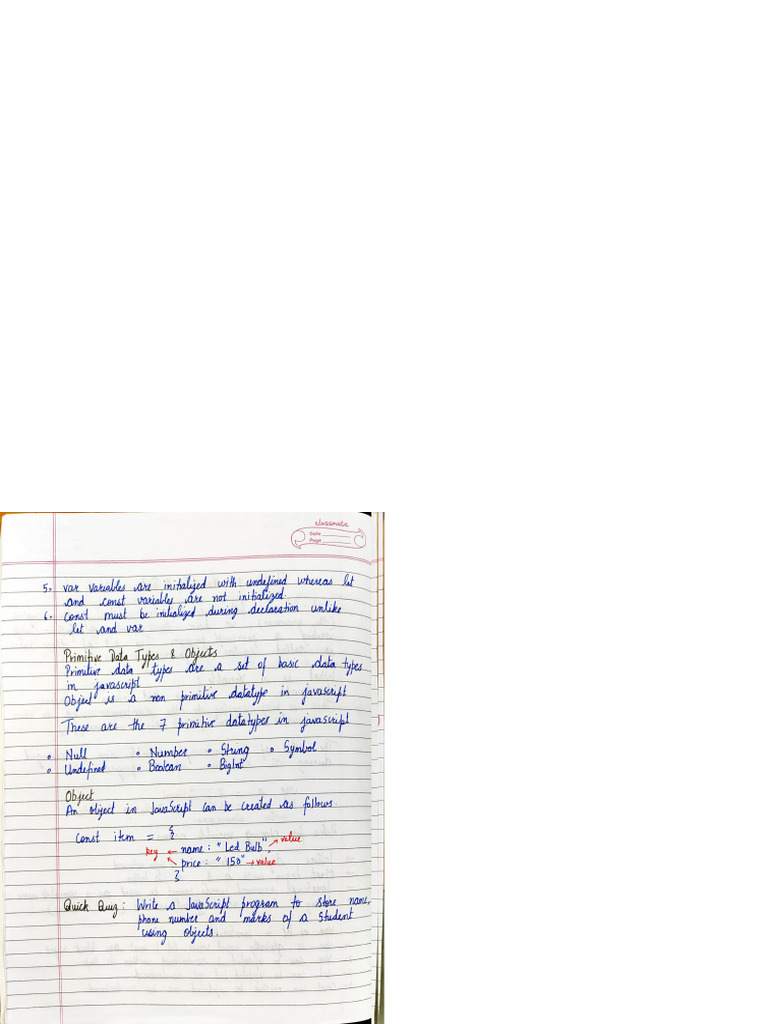 classmate
Date
Page
5. var variables are initialized with undefined whereas let
and const variables are not initialized.
6. const must be initialized during declaration unlike
let and var
Primitive Data Types & Objects
Primitive data types are a set of basic data types
in javascript
Object is a non primitive datatype in javascript
These are the 7 primitive datatypes in javascript
◦ Null ◦ Number ◦ String ◦ Symbol
◦ Undefined ◦ Boolean ◦ BigInt
Object
An object in JavaScript can be created as follows.
Const item = {
key ← name : "Led Bulb", → value
price : "150" → value
}
Quick Quiz : Write a JavaScript program to store name,
phone number and marks of a student
using objects.